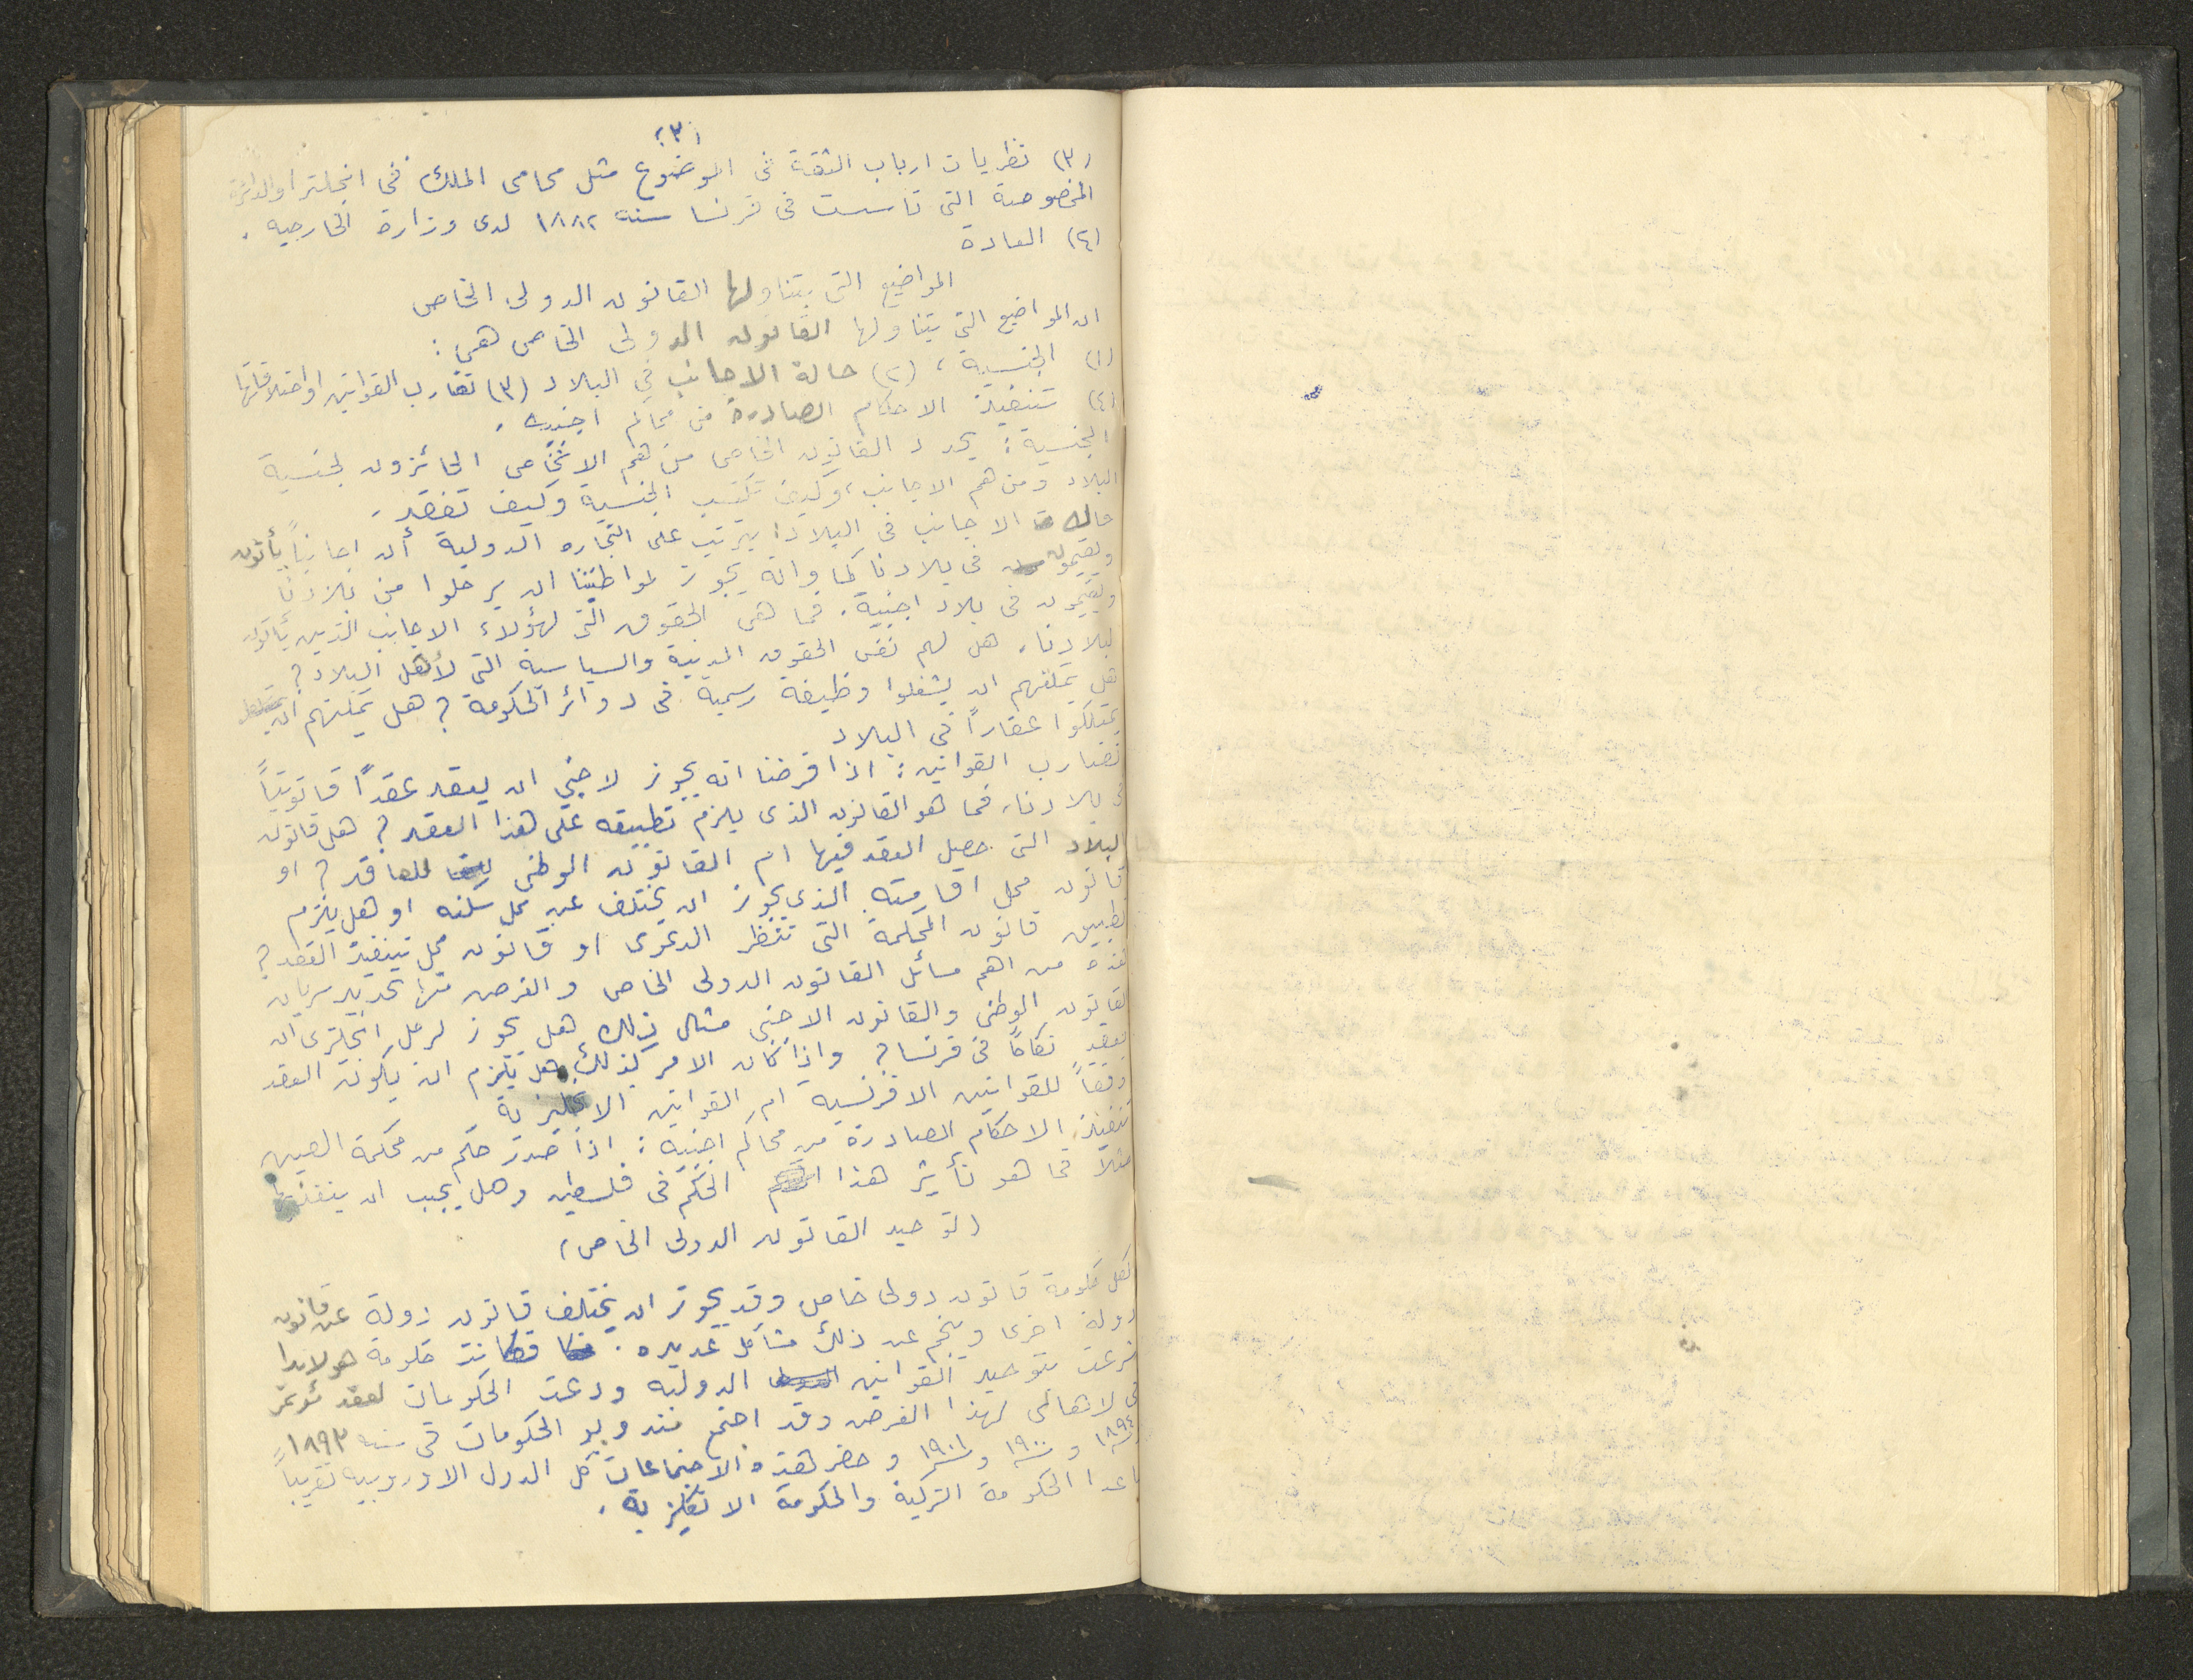 (٣)
(٣) نظريات ارباب الثقة في الموضوع مثل محامى الملك في انجلترا والدائرة
المخصوصة التي تأسست في فرنسا سنة ١٨٨٢ لدى وزارة الخارجيه .
(٤) العادة
المواضيع التي يتناولها القانون الدولى الخاص
ان المواضيع التي يتناولها القانون الدولى الخاص هى :
(١) الجنسية ، (٢) حالة الاجانب في البلاد (٣) تضارب القوانين او اختلافاتها
(٤) تنفيذ الاحكام الصادرة من محاكم اجنبيه .
الجنسية : يحدد القانون الخاص من هم الاشخاص الحائزون لجنسية
البلاد ومن هم الاجانب ، وكيف تكتسب الجنسية وكيف تفقد .
حالة الاجانب في البلاد : يترتب على التجاره الدولية أن اجانباً يأتون
ويقيمون في بلادنا كما وانه يجوز لمواطنينا ان يرحلوا من بلادنا
ويقيمون في بلاد اجنبية . فما هى الحقوق التي لهؤلاء الاجانب الذين يأتون
لبلادنا . هل لهم نفس الحقوق المدنية والسياسية التي لأهل البلاد ؟
هل يمكنهم ان يشغلوا وظيفة رسمية في دوائر الحكومة ؟ هل يمكنهم ان
يمتلكوا عقاراً في البلاد
تضارب القوانين : اذا فرضنا انه يجوز لاجنبي ان يعقد عقداً قانونيّاً
في بلادنا ، فما هو القانون الذى يلزم تطبيقه على هذا العقد ؟ هل قانون
البلاد التي حصل العقد فيها ام القانون الوطنى للعاقد ؟ او
قانون محل اقامته الذى يجوز ان يختلف عن محل سكنه او هل يلزم
تطبيق قانون المحكمة التي تنظر الدعوى او قانون محل تنفيذ العقد ؟
هذه من اهم مسائل القانون الدولى الخاص والغرض منها تحديد سريان
القانون الوطنى والقانون الاجنبى مثال ذلك هل يجوز لرجل انجليزى ان
يعقد نكاحاً في فرنسا ؟ واذا كان الامر كذلك هل يلزم ان يكون العقد
وفقاً للقوانين الافرنسية ام القوانين الانجليزية
تنفيذ الاحكام الصادرة من محاكم اجنبية : اذا صدر حكم من محكمة الصين
مثلاً فما هو تأثير هذا الحكم في فلسطين وهل يجب ان ينفذ بها
(توحيد القانون الدولى الخاص)
لكل حكومة قانون دولى خاص وقد يجوز ان يختلف قانون دولة عن قانون
دولة اخرى وينجم عن ذلك مشاكل عديده . فكانت حكومة هولاندا
شرعت بتوحيد القوانين الدولية ودعت الحكومات لعقد مؤتمر
في لاهاى لهذا الغرض وقد اجتمع مندوبو الحكومات في سنه ١٨٩٣
و ١٨٩٤ و ١٩٠٠ و ١٩٠٤ و حضر هذه الاجتماعات كل الدول الاوروبيه تقريباً
ما عدا الحكومة التركية والحكومة الانكليزية .